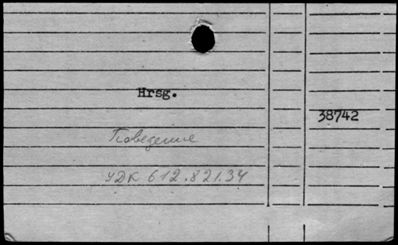 Hrsg.
38742
Поведение
УДК 612.821.34